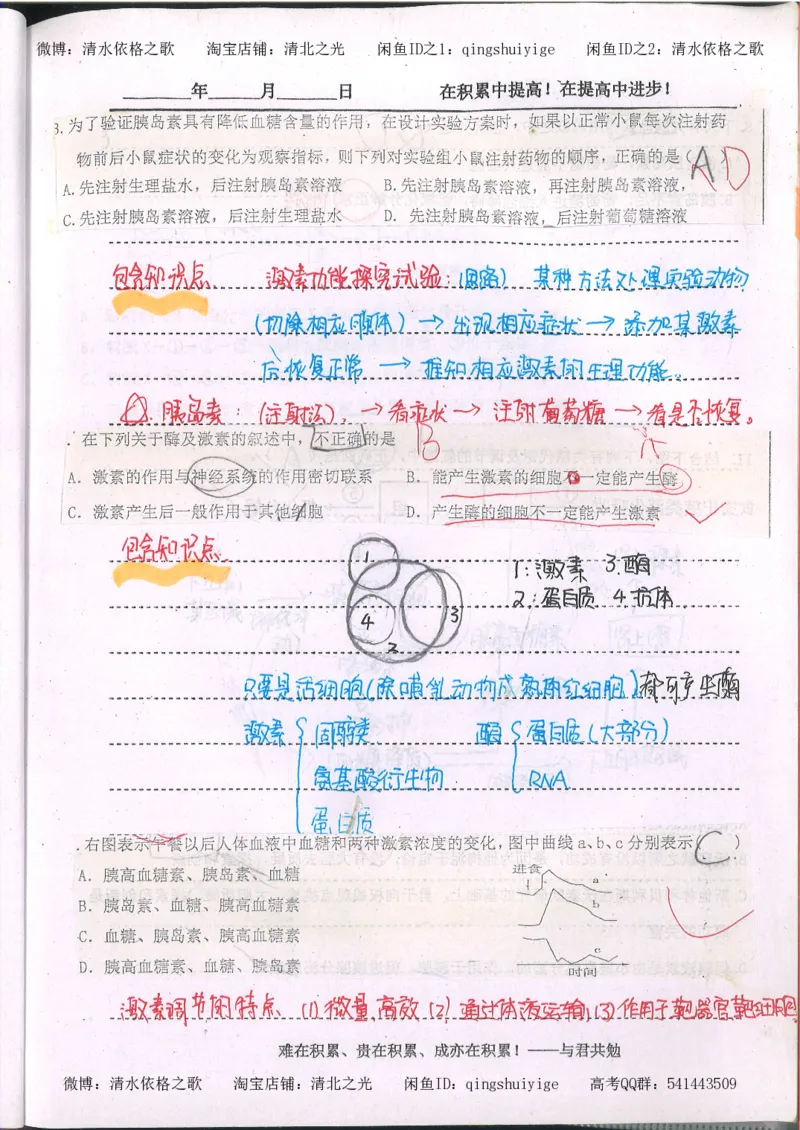 微博：清水依格之歌 淘宝店铺：清北之光 闲鱼ID之1：qingshuiyige 闲鱼ID之2：清水依格之歌
______年______月______日 在积累中提高！在提高中进步！
3.为了验证胰岛素具有降低血糖含量的作用，在设计实验方案时，如果以正常小鼠每次注射药
物前后小鼠症状的变化为观察指标，则下列对实验组小鼠注射药物的顺序，正确的是（A）D
A.先注射生理盐水，后注射胰岛素溶液 B.先注射胰岛素溶液，再注射胰岛素溶液，
C.先注射胰岛素溶液，后注射生理盐水 D. 先注射胰岛素溶液，后注射葡萄糖溶液
包含知识点 激素功能探究试验：（思路） 某种方法处理实验动物
（切除相应腺体）→出现相应症状→添加某激素
后恢复正常 → 推知相应激素的生理功能。
胰岛素 （注射），→看症状→注射葡萄糖→看是否恢复。
. 在下列关于酶及激素的叙述中，不正确的是 B
A．激素的作用与神经系统的作用密切联系 B．能产生激素的细胞不一定能产生酶
C．激素产生后一般作用于其他细胞 D．产生酶的细胞不一定能产生激素
包含知识点
1 1:激素 3.酶
2:蛋白质 4.抗体
4 3
2
只要是活细胞（除哺乳动物成熟的红细胞）都可产生酶
激素 固醇类 酶 蛋白质（大部分）
氨基酸衍生物 RNA
蛋白质
.右图表示午餐以后人体血液中血糖和两种激素浓度的变化，图中曲线a、b、c分别表示（C ）
A．胰高血糖素、胰岛素、血糖
B．胰岛素、血糖、胰高血糖素
C．血糖、胰岛素、胰高血糖素
D．胰高血糖素、血糖、胰岛素
进食
a
b
c
时间
激素调节的特点 (1)微量、高效 (2)通过体液运输，(3)作用于靶器官靶细胞
难在积累、贵在积累、成亦在积累！——与君共勉
微博：清水依格之歌 淘宝店铺：清北之光 闲鱼ID：qingshuiyige 高考QQ群：541443509